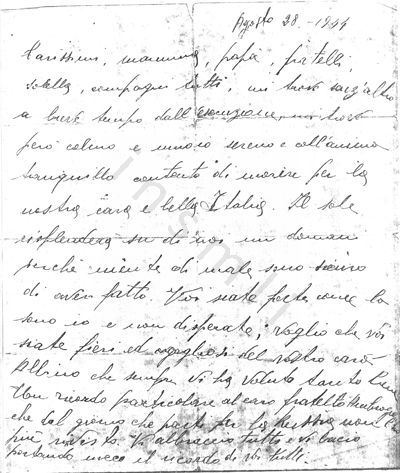 Agosto 28 - 1944
Carissimi, mamma, papà, fratelli,
sorella, compagni tutti, mi trovo senz'altro
a breve tempo dall'esecuzione, mi trovo
però calmo e muoio sereno e coll'animo
tranquillo contento di morire per la
nostra cara e bella Italia. Il sole
risplenderà su di noi un domani
perché niente di male sono sicuro
di aver fatto. Voi siate forti come lo
sono io e non disperate; voglio che voi
siate fieri ed orgogliosi del vostro caro
Albino che sempre vi ha voluto tanto bene
Un ricordo particolare al caro fratello
che dal giorno che partì per la Russia non
più rividi. Vi abbraccio tutti e vi bacio
portando meco il ricordo di voi tutti.